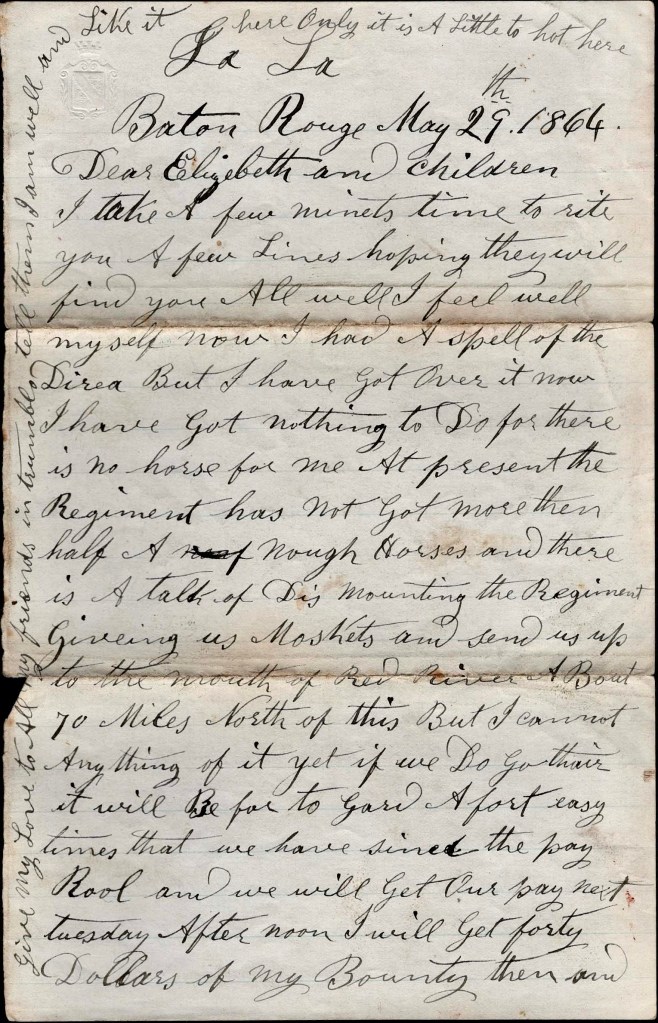 La La
Baton Rouge May 29th. 1864.
Dear Elizebeth and children
I take A few minets time to rite
you A few Lines hoping they will
find you All well I feel well
myself now I had A spell of the
Direa But I have Got Over it now
I have Got nothing to Do for there
is no horse for me At present the
Regiment has Not Got more then
half A nough Horses and there
is A talk of Dis mounting the Regiment
Giveing us Moskets and send us up
to the mouth of Red River A Bout
70 Miles North of this But I cannot
Any thing of it yet if we Do Go thair
it will Be for to Gard A fort easy
times that we have sined the pay
Rool and we will Get Our pay next
tuesday After noon I will Get forty
Dollars of my Bounty then and
Give my Love to All my friends in trumble tell them I am well and
Like it here Only it is A Little to hot here